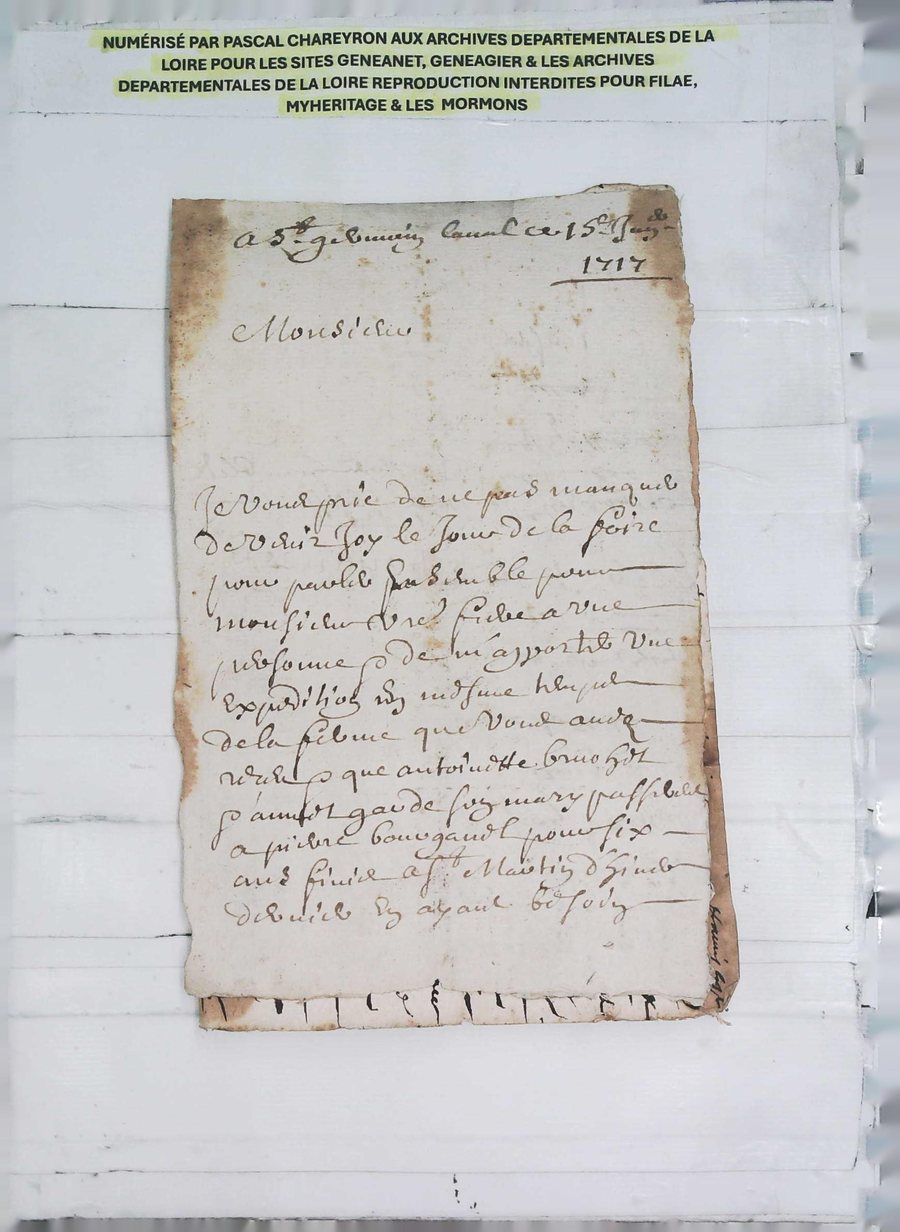 NUMÉRISÉ PAR PASCAL CHAREYRON AUX ARCHIVES DEPARTEMENTALES DE LA
LOIRE POUR LES SITES GENEANET, GENEAGIER & LES ARCHIVES
DEPARTEMENTALES DE LA LOIRE REPRODUCTION INTERDITES POUR FILAE,
MYHERITAGE & LES MORMONS
a St germain laual ce 15e
1717
Monsieur
Je vous prie de ne pas manquer
de venir Icy le Jour de la foire
pour parler Ensemble pour
monsieur vre frere a une
personne & de m'apporter vne
expedition En mesme temps
de la ferme que vous aues
receu que antoinette
gardé son mary passerent
a pierre pour six
ans finie a St Martin d'hiver
dernier En ayant besoin